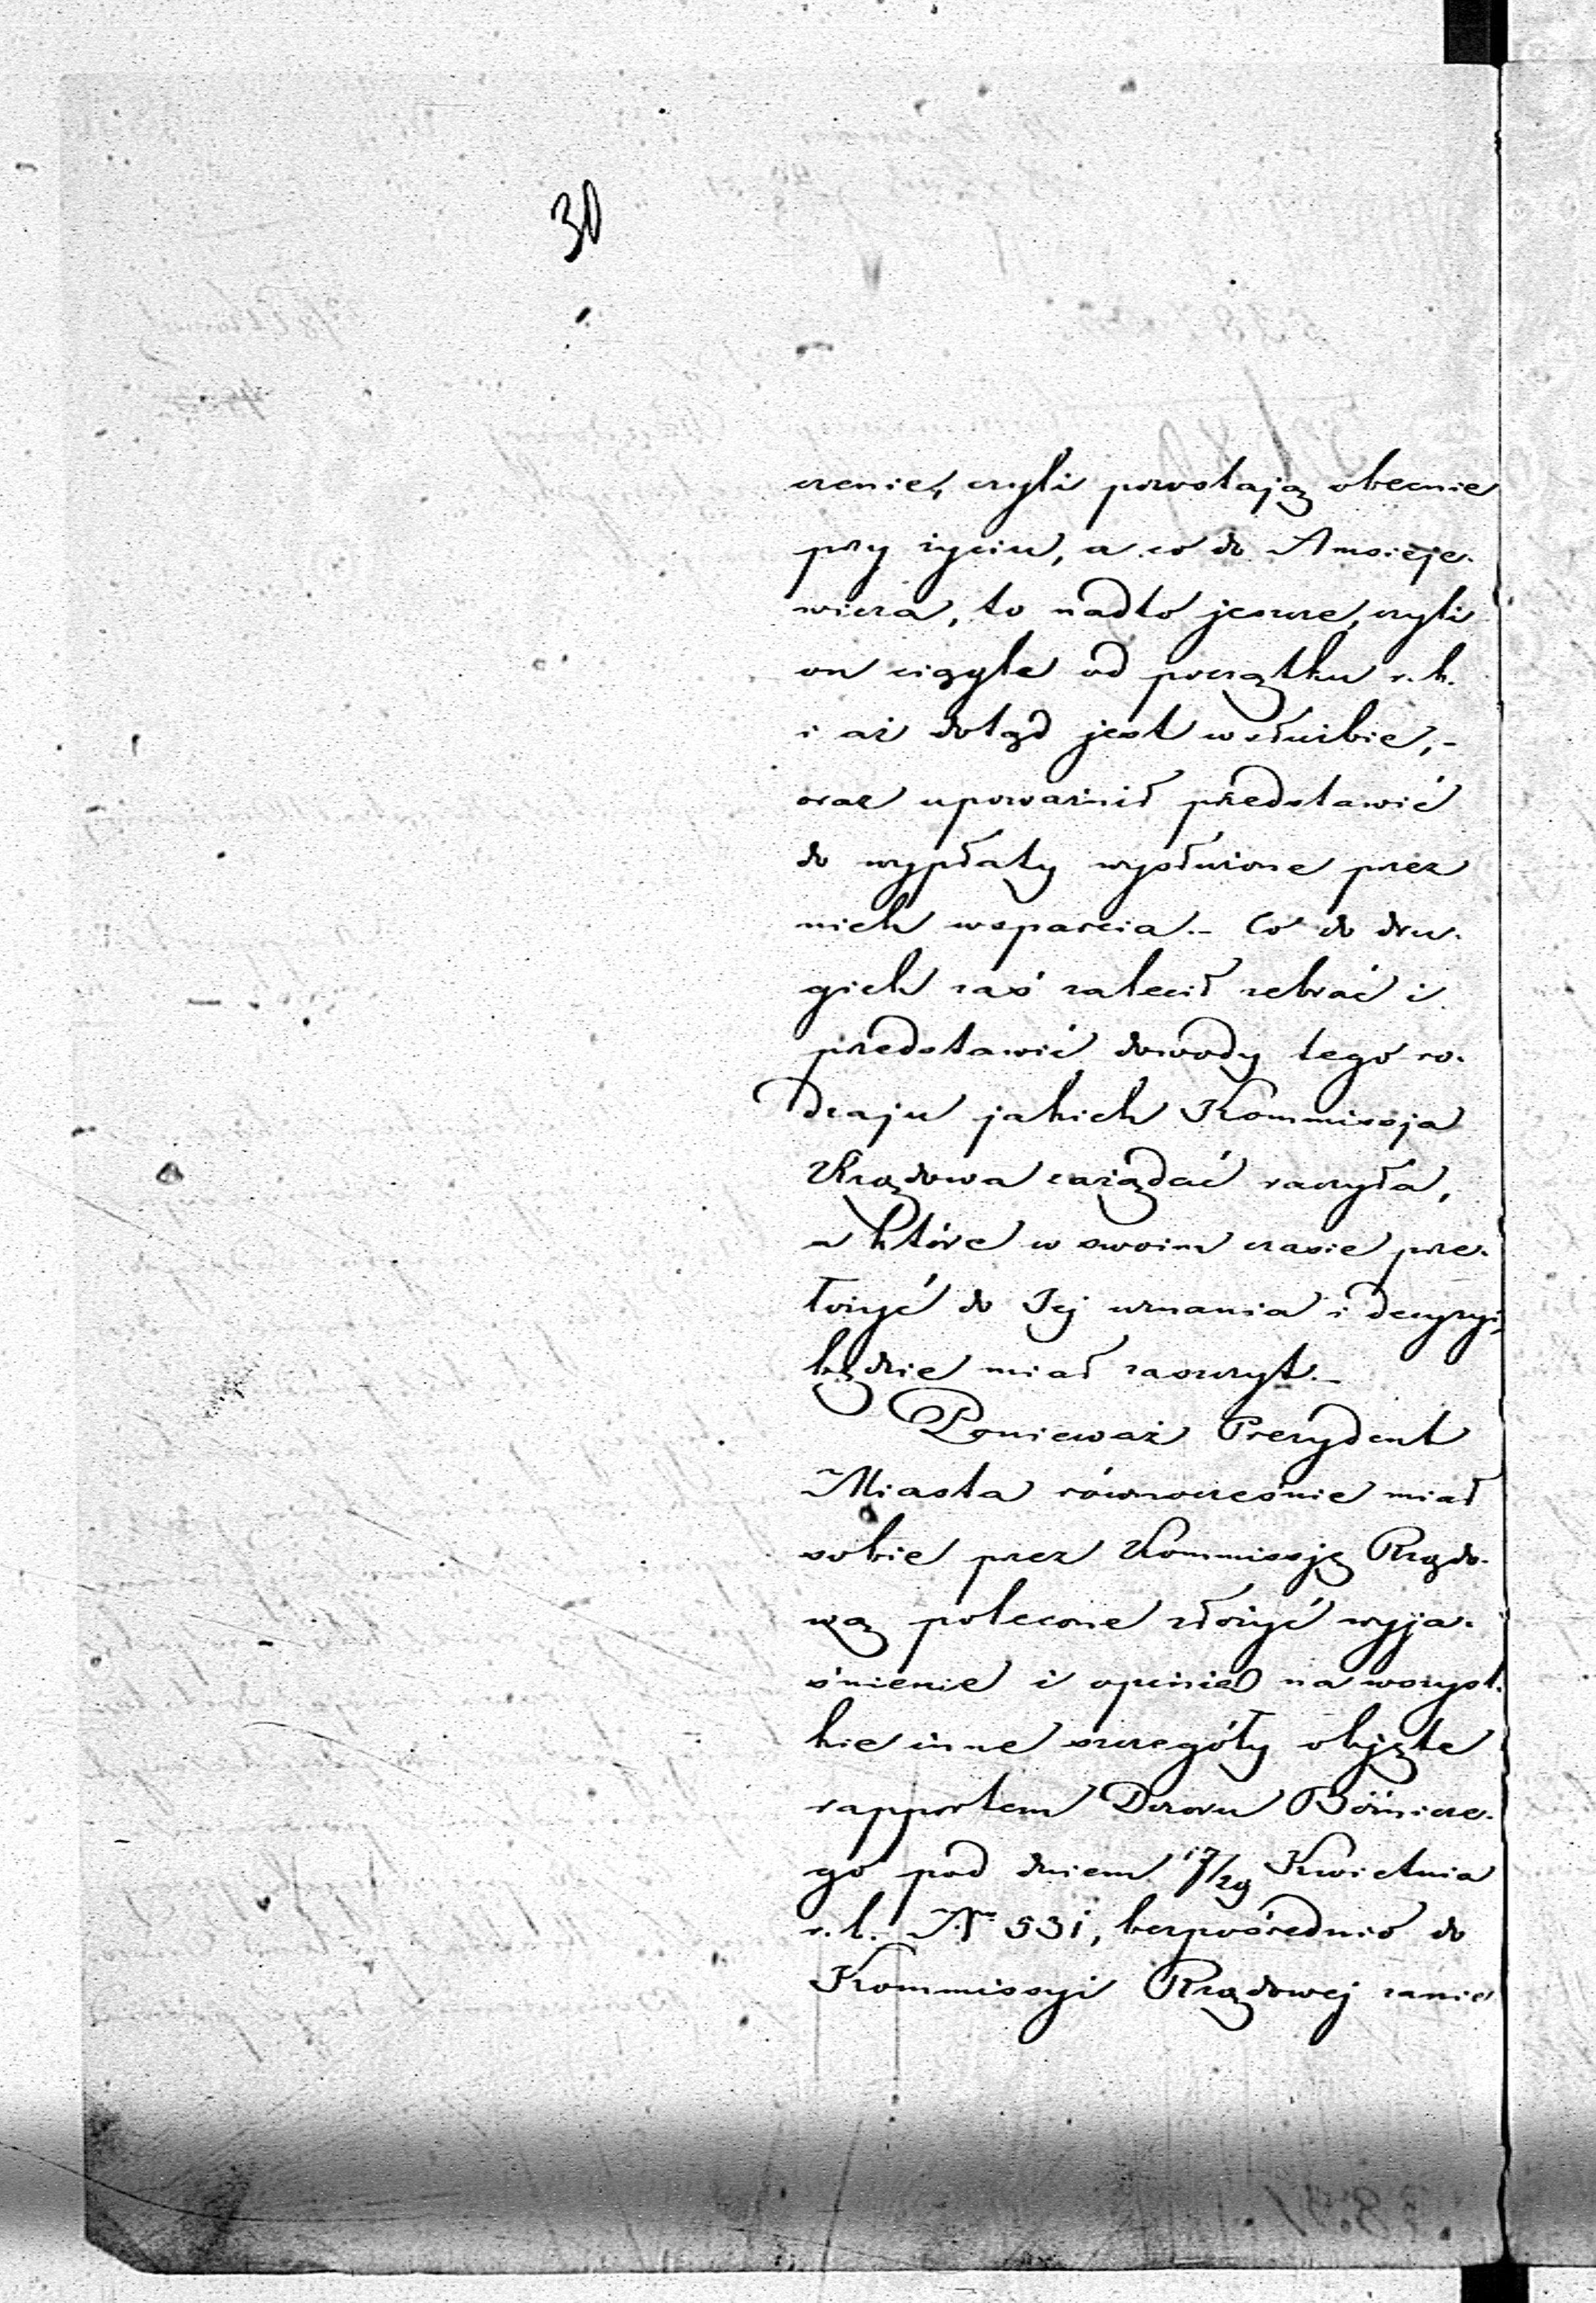 30
czenie, czyli pozostają obecnie
przy życiu, a co do Amsieje-
wicza, to nadto jeszcze, czyli
on ciągle od początku r. b.
i aż dotąd jest w służbie, -
oraz upoważnił przedstawić
do wypłaty wysłużone przez
nich wsparcia. - Co do dru-
gich zaś zalecił zebrać i
przedstawić dowody tego ro-
dzaju jakich Kommissja
Rządowa zażądać raczyła,
a które w swoim czasie prze-
łożyć do Jej uznania i decyzyi,
będzie miał zaszczyt. -
Ponieważ Prezydent
Miasta równocześnie miał
sobie przez Kommissję Rządo-
wą polecone złożyć wyja-
śnienie i opinie na wszyst-
kie inne szczegóły objęte
rapportem Dozoru Bóżnicze-
go pod dniem 17/29 Kwietnia
r. b. No 531, bezpośrednio do
Kommissyi Rządowej zanie